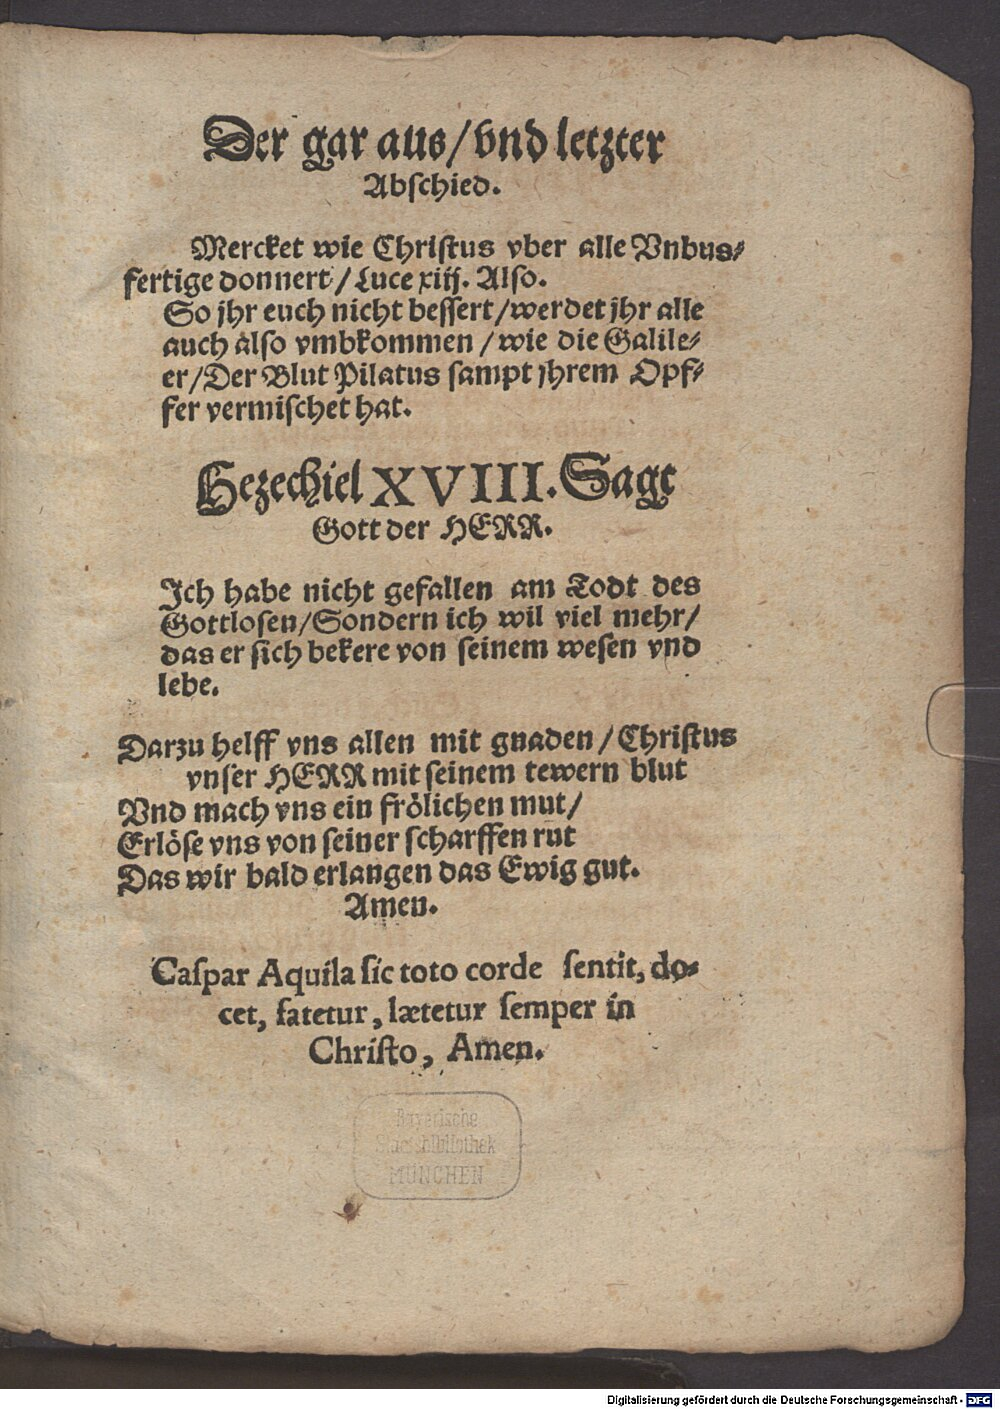 Der gar aus/vnd letzter
Abschied.
Mercket wie Christus vber alle Vnbus⸗
fertige donnert/Luce xiij. Also.
So jhr euch nicht bessert/werdet jhr alle
auch also vmbkommen/wie die Galile⸗
er/Der Blut Pilatus sampt jhrem Opf⸗
fer vermischet hat.
Hezechiel XVIII. Sagt
Gott der HERR.
Ich habe nicht gefallen am Todt des
Gottlosen/Sondern ich wil viel mehr/
das er sich bekere von seinem wesen vnd
lebe.
Darzu helff vns allen mit gnaden/Christus
vnser HERR mit seinem tewern blut
Vnd mach vns ein frölichen mut/
Erlöse vns von seiner scharffen rut
Das wir bald erlangen das Ewig gut.
Amen.
Caspar Aquila sic toto corde sentit, do-
cet, fatetur, lætetur semper in
Christo, Amen.
Bayerische
Staatsbibliothek
MÜNCHEN
Digitalisierung gefördert durch die Deutsche Forschungsgemeinschaft - DFG